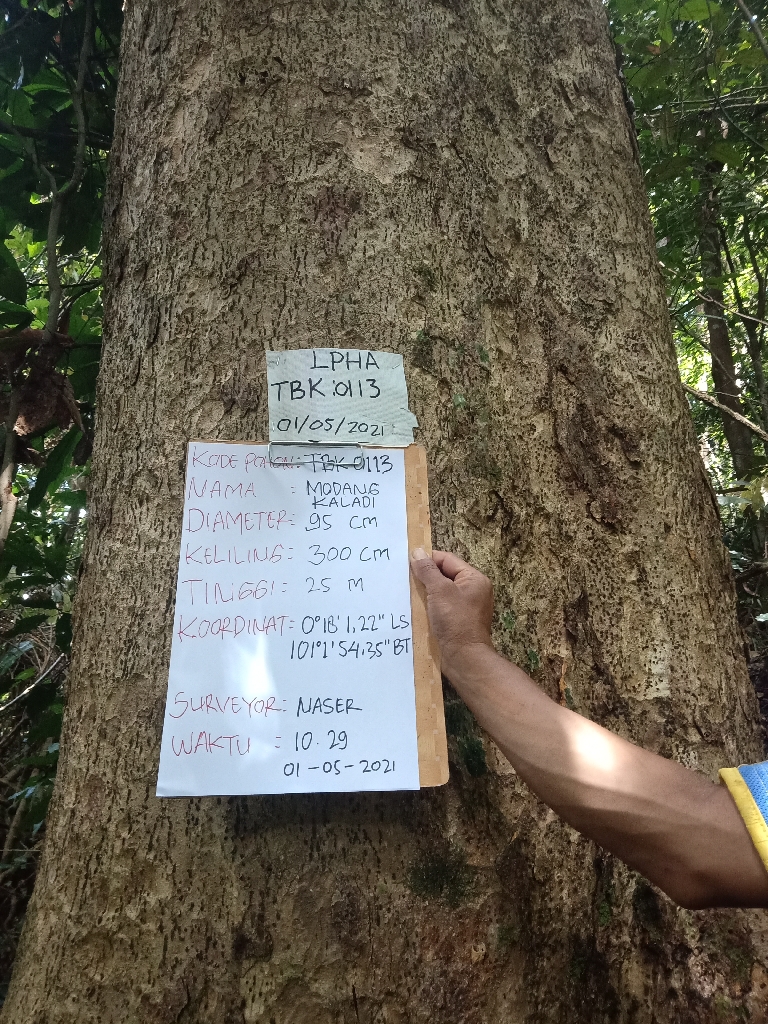 LPHA
TBK:0113
01/05/2021
KODE POHON: TBK 0113
NAMA : MODANG
KALADI
DIAMETER: 95 cm
KELILING: 300 cm
TINGGI: 25 M
KOORDINAT= 0°18'1,22" LS
101°1'54,35" BT
SURVEYOR: NASER
WAKTU : 10.29
01-05-2021